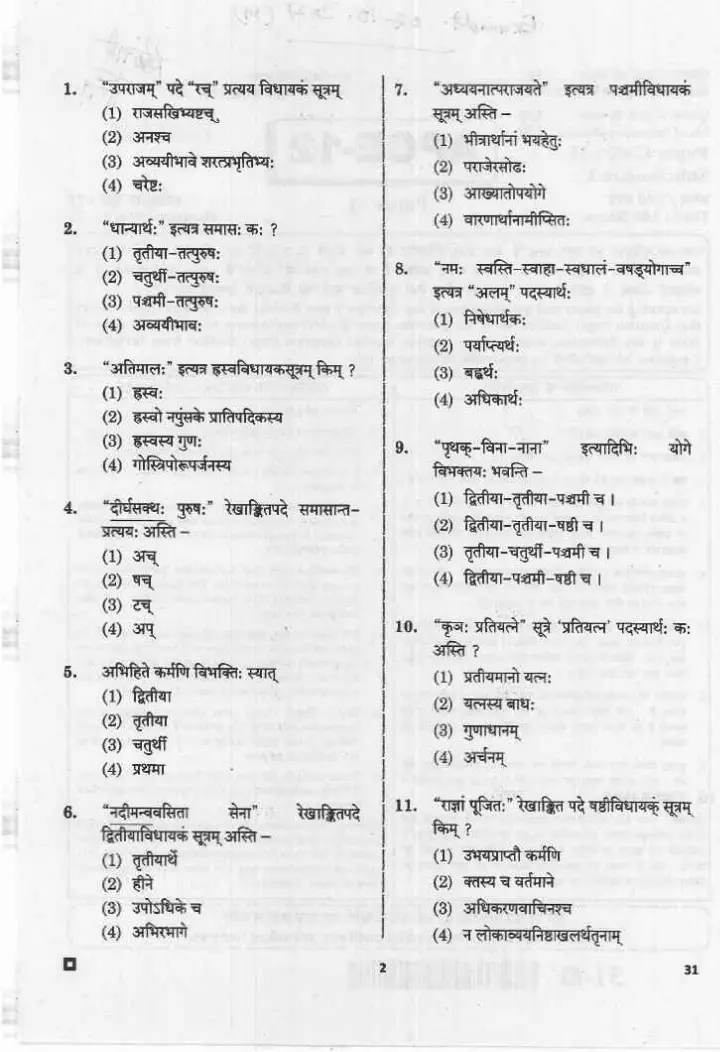 1. "उपराजम्" पदे "रच्" प्रत्यय विधायकं सूत्रम्
(1) राजसखिभ्यष्टच्
(2) अनश्च
(3) अव्ययीभावे शरत्प्रभृतिभ्यः
(4) चरेष्टः
2. "धान्यार्थः" इत्यत्र समासः कः ?
(1) तृतीया-तत्पुरुषः
(2) चतुर्थी-तत्पुरुषः
(3) पञ्चमी-तत्पुरुषः
(4) अव्ययीभावः
3. "अतिमालः" इत्यत्र ह्रस्वविधायकसूत्रम् किम् ?
(1) ह्रस्वः
(2) ह्रस्वो नपुंसके प्रातिपदिकस्य
(3) ह्रस्वस्य गुणः
(4) गोस्त्रिपोरूपर्जनस्य
4. "दीर्घसक्थः पुरुषः" रेखाङ्कितपदे समासान्त-
प्रत्ययः अस्ति –
(1) अच्
(2) षच्
(3) टच्
(4) अप्
5. अभिहिते कर्मणि विभक्तिः स्यात्
(1) द्वितीया
(2) तृतीया
(3) चतुर्थी
(4) प्रथमा
6. "नदीमन्ववसिता सेना" रेखाङ्कितपदे
द्वितीयाविधायकं सूत्रम् अस्ति –
(1) तृतीयार्थे
(2) हीने
(3) उपोऽधिके च
(4) अभिरभागे
7. "अध्ययनात्पराजयते" इत्यत्र पञ्चमीविधायकं
सूत्रम् अस्ति –
(1) भीत्रार्थानां भयहेतुः
(2) पराजेरसोढः
(3) आख्यातोपयोगे
(4) वारणार्थानामीप्सितः
8. "नमः स्वस्ति-स्वाहा-स्वधालं-वषड्योगाच्च"
इत्यत्र "अलम्" पदस्यार्थः
(1) निषेधार्थकः
(2) पर्याप्त्यर्थः
(3) बह्वर्थः
(4) अधिकार्थः
9. "पृथक्-विना-नाना" इत्यादिभिः योगे
विभक्तयः भवन्ति –
(1) द्वितीया-तृतीया-पञ्चमी च ।
(2) द्वितीया-तृतीया-षष्ठी च ।
(3) तृतीया-चतुर्थी-पञ्चमी च ।
(4) द्वितीया-पञ्चमी-षष्ठी च ।
10. "कृञः प्रतियत्ने" सूत्रे 'प्रतियत्न' पदस्यार्थः कः
अस्ति ?
(1) प्रतीयमानो यत्नः
(2) यत्नस्य बाधः
(3) गुणाधानम्
(4) अर्चनम्
11. "राज्ञां पूजितः" रेखाङ्कित पदे षष्ठीविधायकं सूत्रम्
किम् ?
(1) उभयप्राप्तौ कर्मणि
(2) क्तस्य च वर्तमाने
(3) अधिकरणवाचिनश्च
(4) न लोकाव्ययनिष्ठाखलर्थतृनाम्
2
31